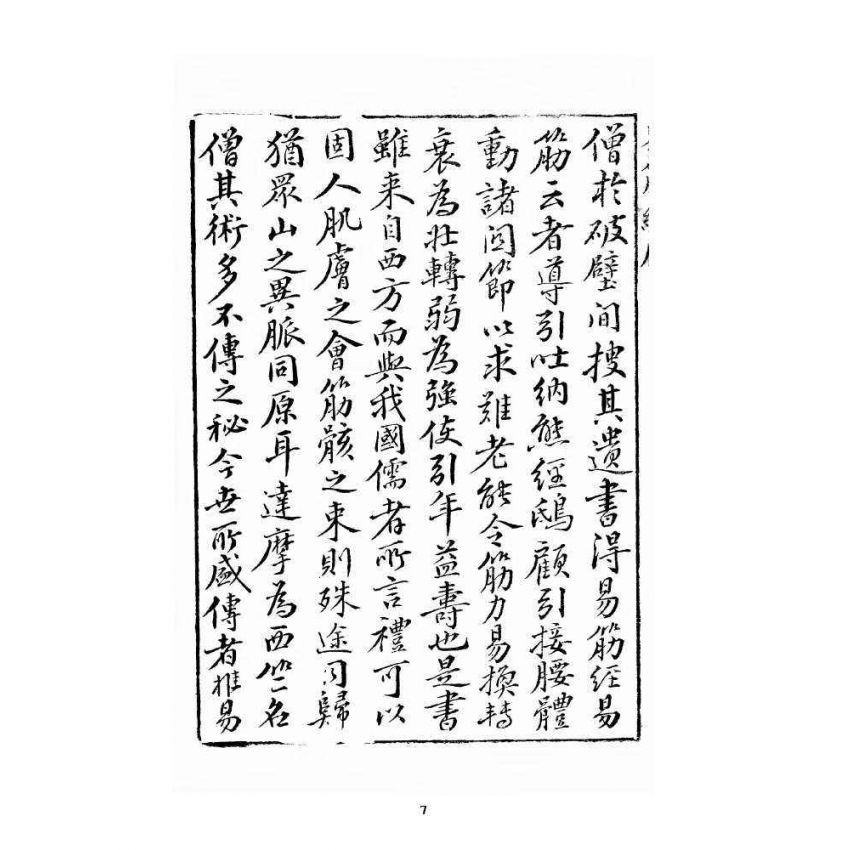 僧於破壁間搜其遺書得易筋經易
筋云者導引吐納熊經鴟顧引接腰體
動諸関節以求難老能令筋力易換轉
衰為壯轉弱為強使引年益壽也是書
雖来自西方而與我國儒者所言禮可以
固人肌膚之會筋骸之束則殊途同歸
猶眾山之異脈同原耳達摩為西竺名
僧其術多不傳之秘今世所盛傳者惟易
7